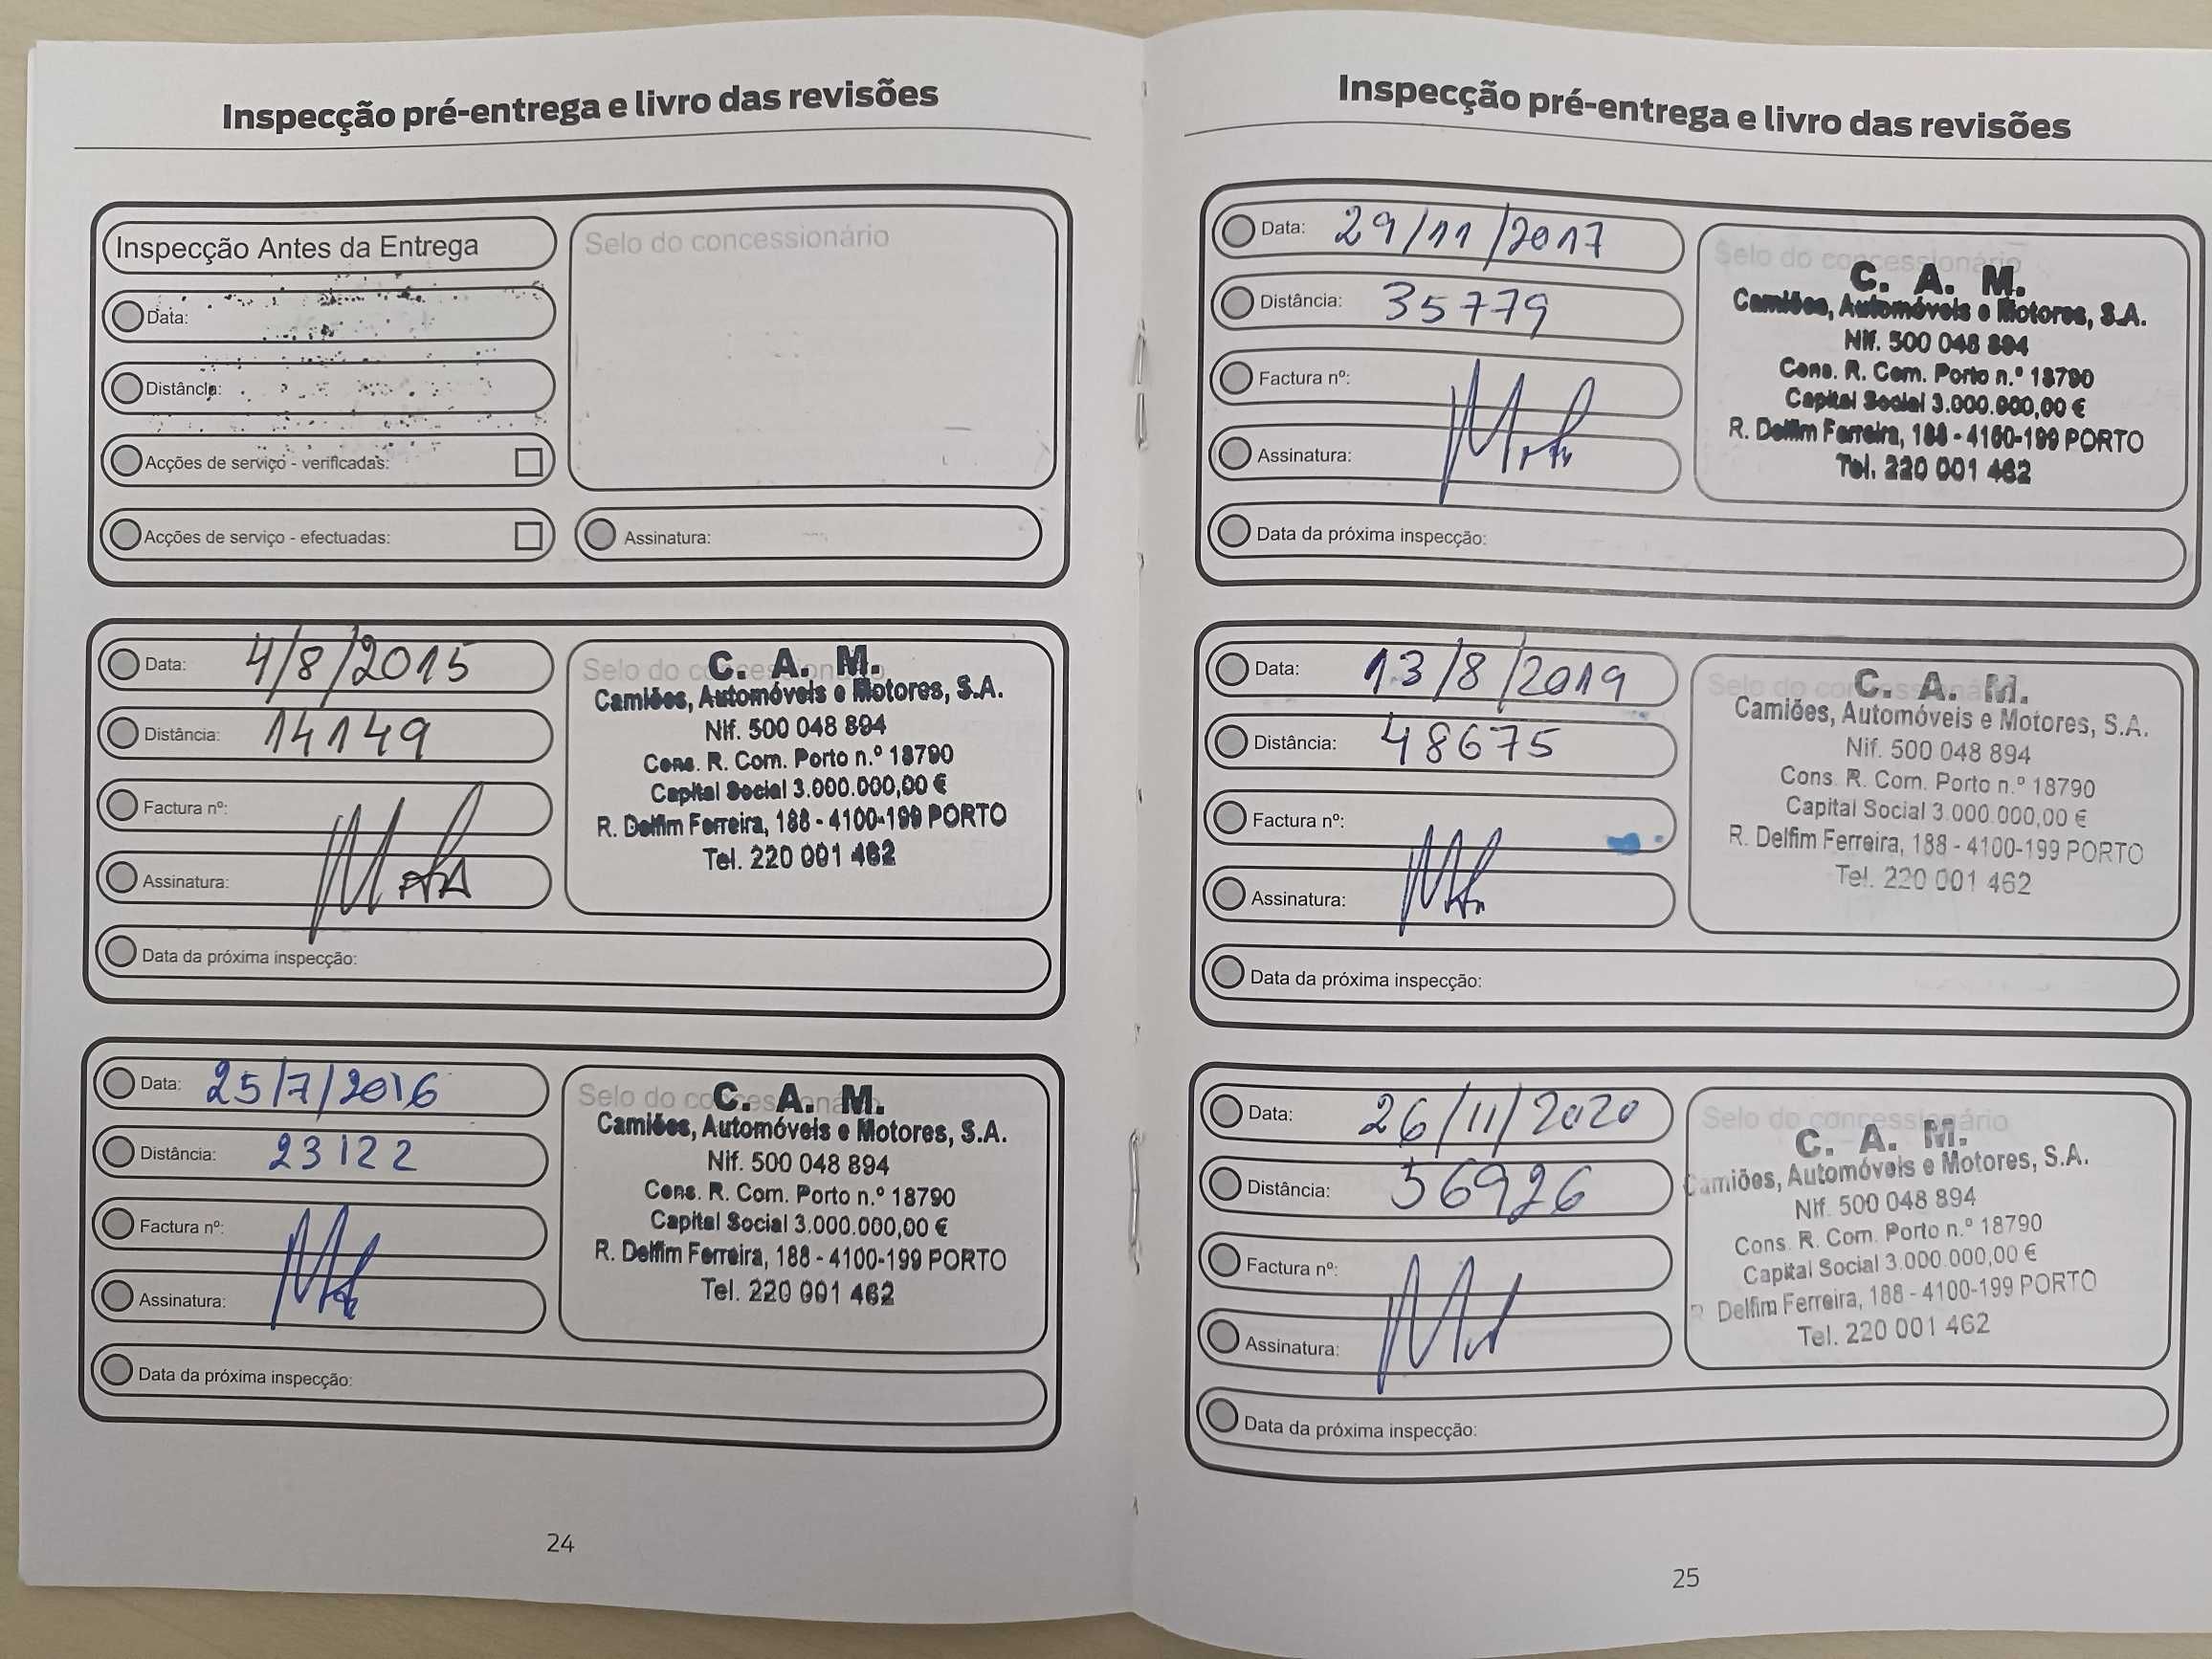 Inspecção pré-entrega e livro das revisões
Inspecção Antes da Entrega
Selo do concessionário
Data:
Distância:
Acções de serviço - verificadas:
Acções de serviço - efectuadas:
Assinatura:
Data: 4/8/2015
Distância: 14149
Factura nº:
Assinatura:
Data da próxima inspecção:
Selo do concessionário
C. A. M.
Camiões, Automóveis e Motores, S.A.
Nif. 500 048 894
Cons. R. Com. Porto n.º 18790
Capital Social 3.000.000,00 €
R. Delfim Ferreira, 188 - 4100-199 PORTO
Tel. 220 001 462
Data: 25/7/2016
Distância: 23122
Factura nº:
Assinatura:
Data da próxima inspecção:
Selo do concessionário
C. A. M.
Camiões, Automóveis e Motores, S.A.
Nif. 500 048 894
Cons. R. Com. Porto n.º 18790
Capital Social 3.000.000,00 €
R. Delfim Ferreira, 188 - 4100-199 PORTO
Tel. 220 001 462
24
Inspecção pré-entrega e livro das revisões
Data: 29/11/2017
Distância: 35779
Factura nº:
Assinatura:
Data da próxima inspecção:
Selo do concessionário
C. A. M.
Camiões, Automóveis e Motores, S.A.
Nif. 500 048 894
Cons. R. Com. Porto n.º 18790
Capital Social 3.000.000,00 €
R. Delfim Ferreira, 188 - 4100-199 PORTO
Tel. 220 001 462
Data: 13/8/2019
Distância: 48675
Factura nº:
Assinatura:
Data da próxima inspecção:
Selo do concessionário
C. A. M.
Camiões, Automóveis e Motores, S.A.
Nif. 500 048 894
Cons. R. Com. Porto n.º 18790
Capital Social 3.000.000,00 €
R. Delfim Ferreira, 188 - 4100-199 PORTO
Tel. 220 001 462
Data: 26/11/2020
Distância: 56926
Factura nº:
Assinatura:
Data da próxima inspecção:
Selo do concessionário
C. A. M.
Camiões, Automóveis e Motores, S.A.
Nif. 500 048 894
Cons. R. Com. Porto n.º 18790
Capital Social 3.000.000,00 €
R. Delfim Ferreira, 188 - 4100-199 PORTO
Tel. 220 001 462
25